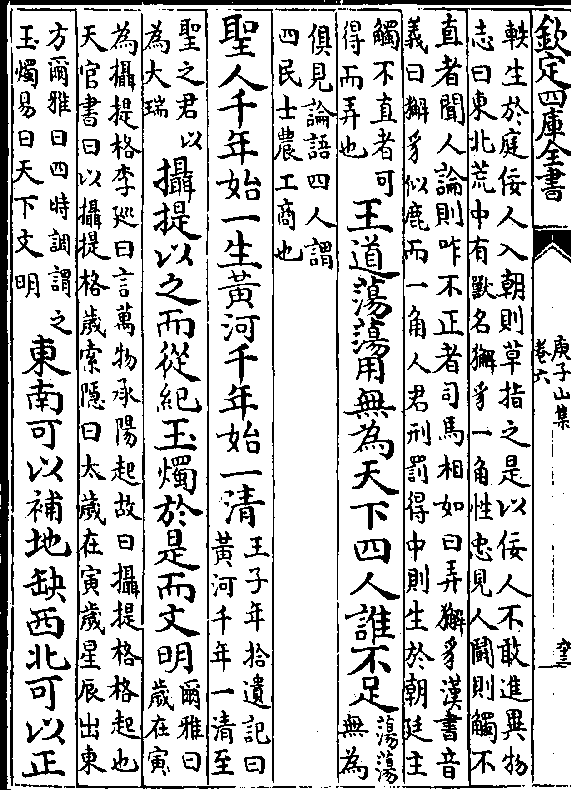 欽定四庫全書
庚子山集
卷六
六十三
軼生於庭佞人入朝則草指之是以佞人不敢進異物
志曰東北荒中有獸名獬豸一角性忠見人鬬則觸不
直者聞人論則咋不正者司馬相如曰弄獬豸漢書音
義曰獬豸似鹿而一角人君刑罰得中則生於朝廷主
觸不直者可
得而弄也
王道蕩蕩用無為天下四人誰不足
蕩蕩
無為
俱見論語四人謂
四民士農工商也
聖人千年始一生黃河千年始一清
王子年拾遺記曰
黃河千年一清至
聖之君以
為大瑞
攝提以之而從紀玉燭於是而文明
爾雅曰
歲在寅
為攝提格李廵曰言萬物承陽起故曰攝提格格起也
天官書曰以攝提格歲索隱曰太歲在寅歲星辰出東
方爾雅曰四時調謂之
玉燭易曰天下文明
東南可以補地缺西北可以正